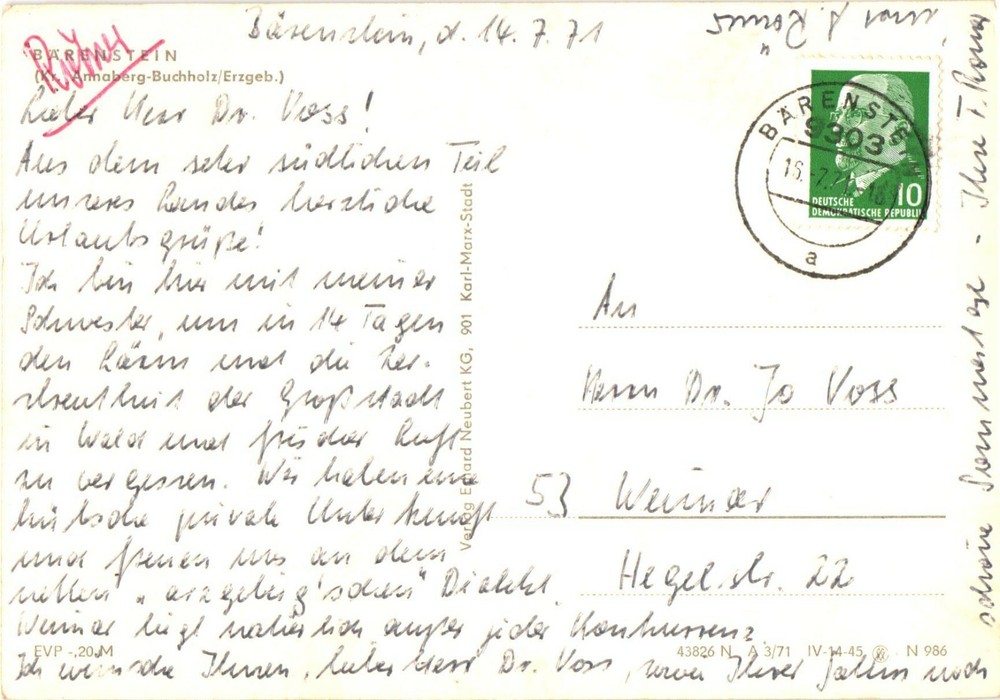 Bärenstein, d. 14.7.71
BÄRENSTEIN
(Kr. Annaberg-Buchholz/Erzgeb.)
Lieber Herr Dr. Voss!
Aus dem sehr südlichen Teil
unseres Landes herzliche
Urlaubsgrüße!
Ich bin hier mit meiner
Schwester, um in 14 Tagen
den Lärm und die Zer-
streutheit der Großstadt
in Wald und frischer Luft
zu vergessen. Wir haben eine
hübsche private Unterkunft
und freuen uns an dem
netten „erzgebirg'schen" Dialekt.
Weimar liegt natürlich außer jeder Konkurrenz.
Ich wünsche Ihnen, lieber Herr Dr. Voss, sowie Ihrer Gattin noch
schöne Sommertage - Ihre F. Roma
EVP -,20 M
Verlag Erhard Neubert KG, 901 Karl-Marx-Stadt
43826 N A 3/71 IV-14-45 N 986
BÄRENSTEIN
9303
16.-7.71
a
10
DEUTSCHE
DEMOKRATISCHE REPUBLIK
An
Herrn Dr. Jo Voss
53 Weimar
Hegelstr. 22